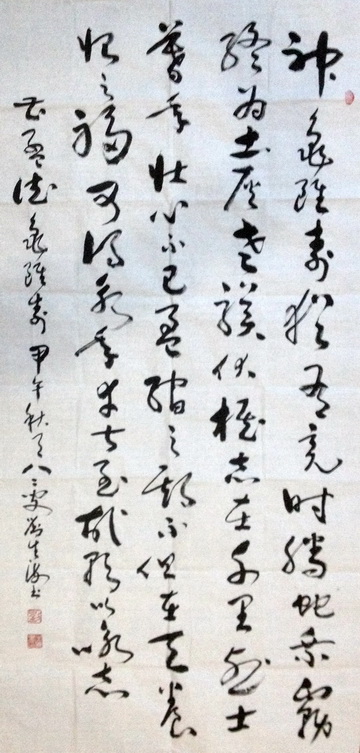 神龜雖壽猶有竟時騰蛇乘霧
終為土灰老驥伏櫪志在千里烈士
暮年壯心不已盈縮之期不但在天養
怡之福可得永年幸甚至哉歌以咏志
孟德龜雖壽甲午秋月八三叟書